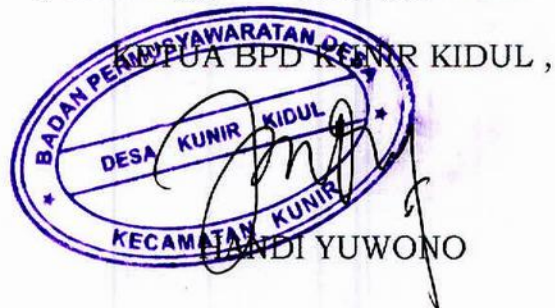 KETUA BPD KUNIR KIDUL ,
BADAN PERMUSYAWARATAN DESA
DESA KUNIR KIDUL
KECAMATAN KUNIR
HANDI YUWONO